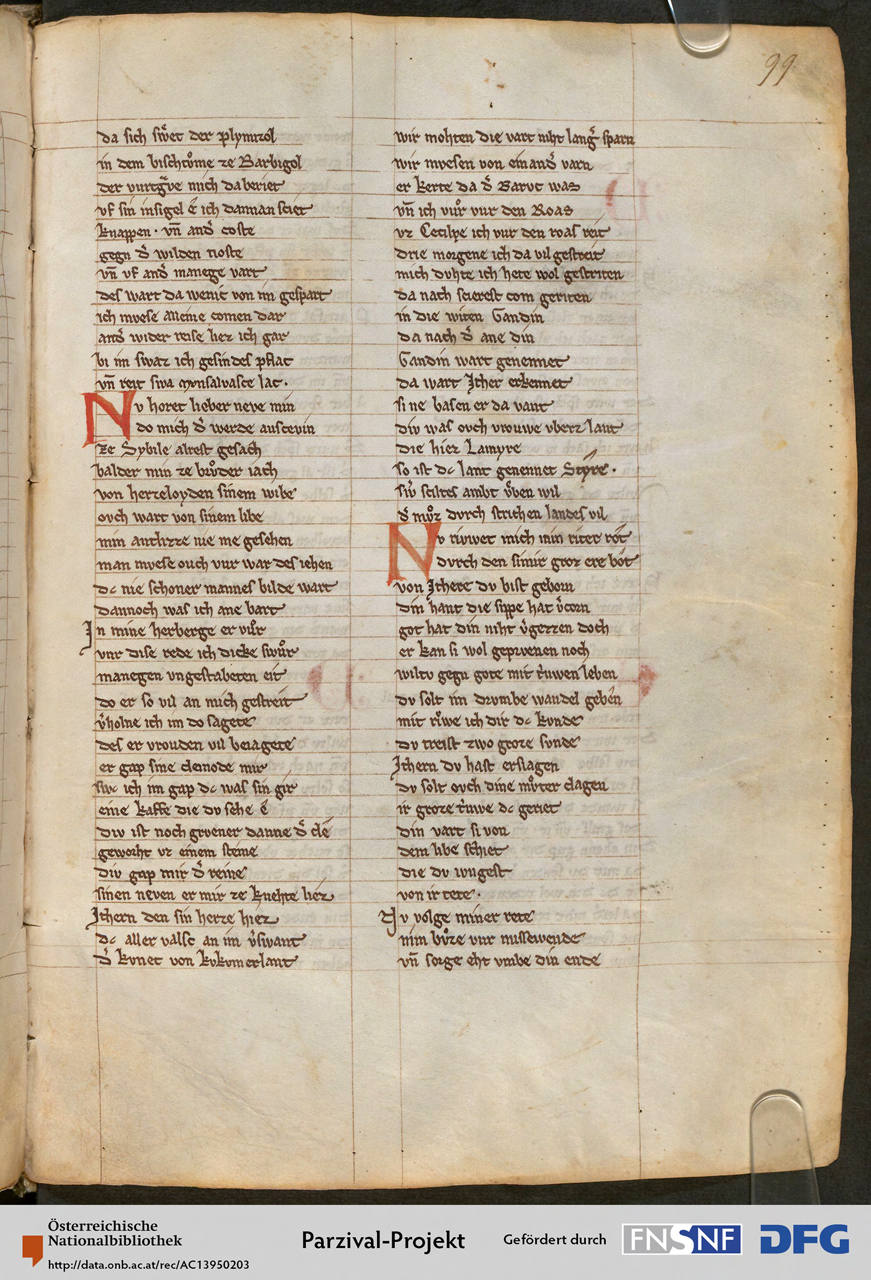 99
da sich sw̉et der plymizol
in dem bischtůme ze Barbigol
der burtgᵛe mich da beriet
vf sin insigel ẽ ich dannan sciet
knappen · vn̄ and̉ coste
gegn d̉ wilden tioste
vn̄ vf and̉ manege vart
des wart da wenic von im gespart
ich mvese alleine comen dar
and̉ wider reise liez ich gar
bi im swaz ich gesindes pflac
vn̄ reit swa mvnsalvasce lac ·
Nv horet lieber neve min
do mich d̉ werde anscevin
ze Sybile alrest gesach
balder min ze brůder iach
von herzeloyden sinem wibe
ovch wart von sinem libe
min antlizze nie me gesehen
man mvese ouch vur war des iehen
dc nie schoner mannes bilde wart
dannoch was ich ane bart
In mine herberge er vůr
vur dise rede ich dicke swůr
manegen vngestabeten eit
do er so vil an mich gestreit
v̉holne ich im do sagete
des er vrouden vil beiagete
er gap sine cleinode mir
swc ich im gap dc was sin gir
eine kaffe die dv sehe ẽ
div ist noch grvener danne d̉ clẽ
geworht vz einem steine
div gap mir d̉ reine
sinen neven er mir ze knehte liez
Ithern den sin herze hiez
dc aller valsc an im v̉swant
d̉ kvnec von kvkvmerlant
wir mohten die vart niht lang̉ sparn
wir mvesen von einand̉ varn
er kerte da d̉ Barvc was
vn̄ ich vůr vur den Roas
vz Cecilye ich vur den roas reit
drie morgene ich da vil gestreit
mich dvhte ich hete wol gestriten
da nach scierest com geriten
in die witen Gandin
da nach d̉ ane din
Gandin wart genennet
da wart Ither erkennet
sine basen er da vant
div was ovch vrouwe vberz lant
die hiez Lamyre
so ist dc lant genennet Styre ·
swͥ sciltes ambt v̉ben wil
d̉ můz dvrch strichen landes vil
Nv rivwet mich min riter rot
dvrch den simir groz ere bot
von Ithere dv bist geborn
din hant die sippe hat v̉corn
got hat din niht v̉gezzen doch
er kan si wol geprvenen noch
wiltv gegn gote mit tͥuwen leben
dv solt im drvmbe wandel geben
mit rͥwe ich dir dc kvnde
dv treist zwo groze svnde
Ithern dv hast erslagen
dv solt ovch dine můter clagen
ir groze tͥuwe dc geriet
din vart si von
dem libe schiet
die dv ivngest
von ir tete ·
Nv volge miner rete
nim bůze vur missewende
vn̄ sorge eht vmbe din ende
Österreichische
Nationalbibliothek
http://data.onb.ac.at/rec/AC13950203
Parzival-Projekt
Gefördert durch
FNSNF
DFG